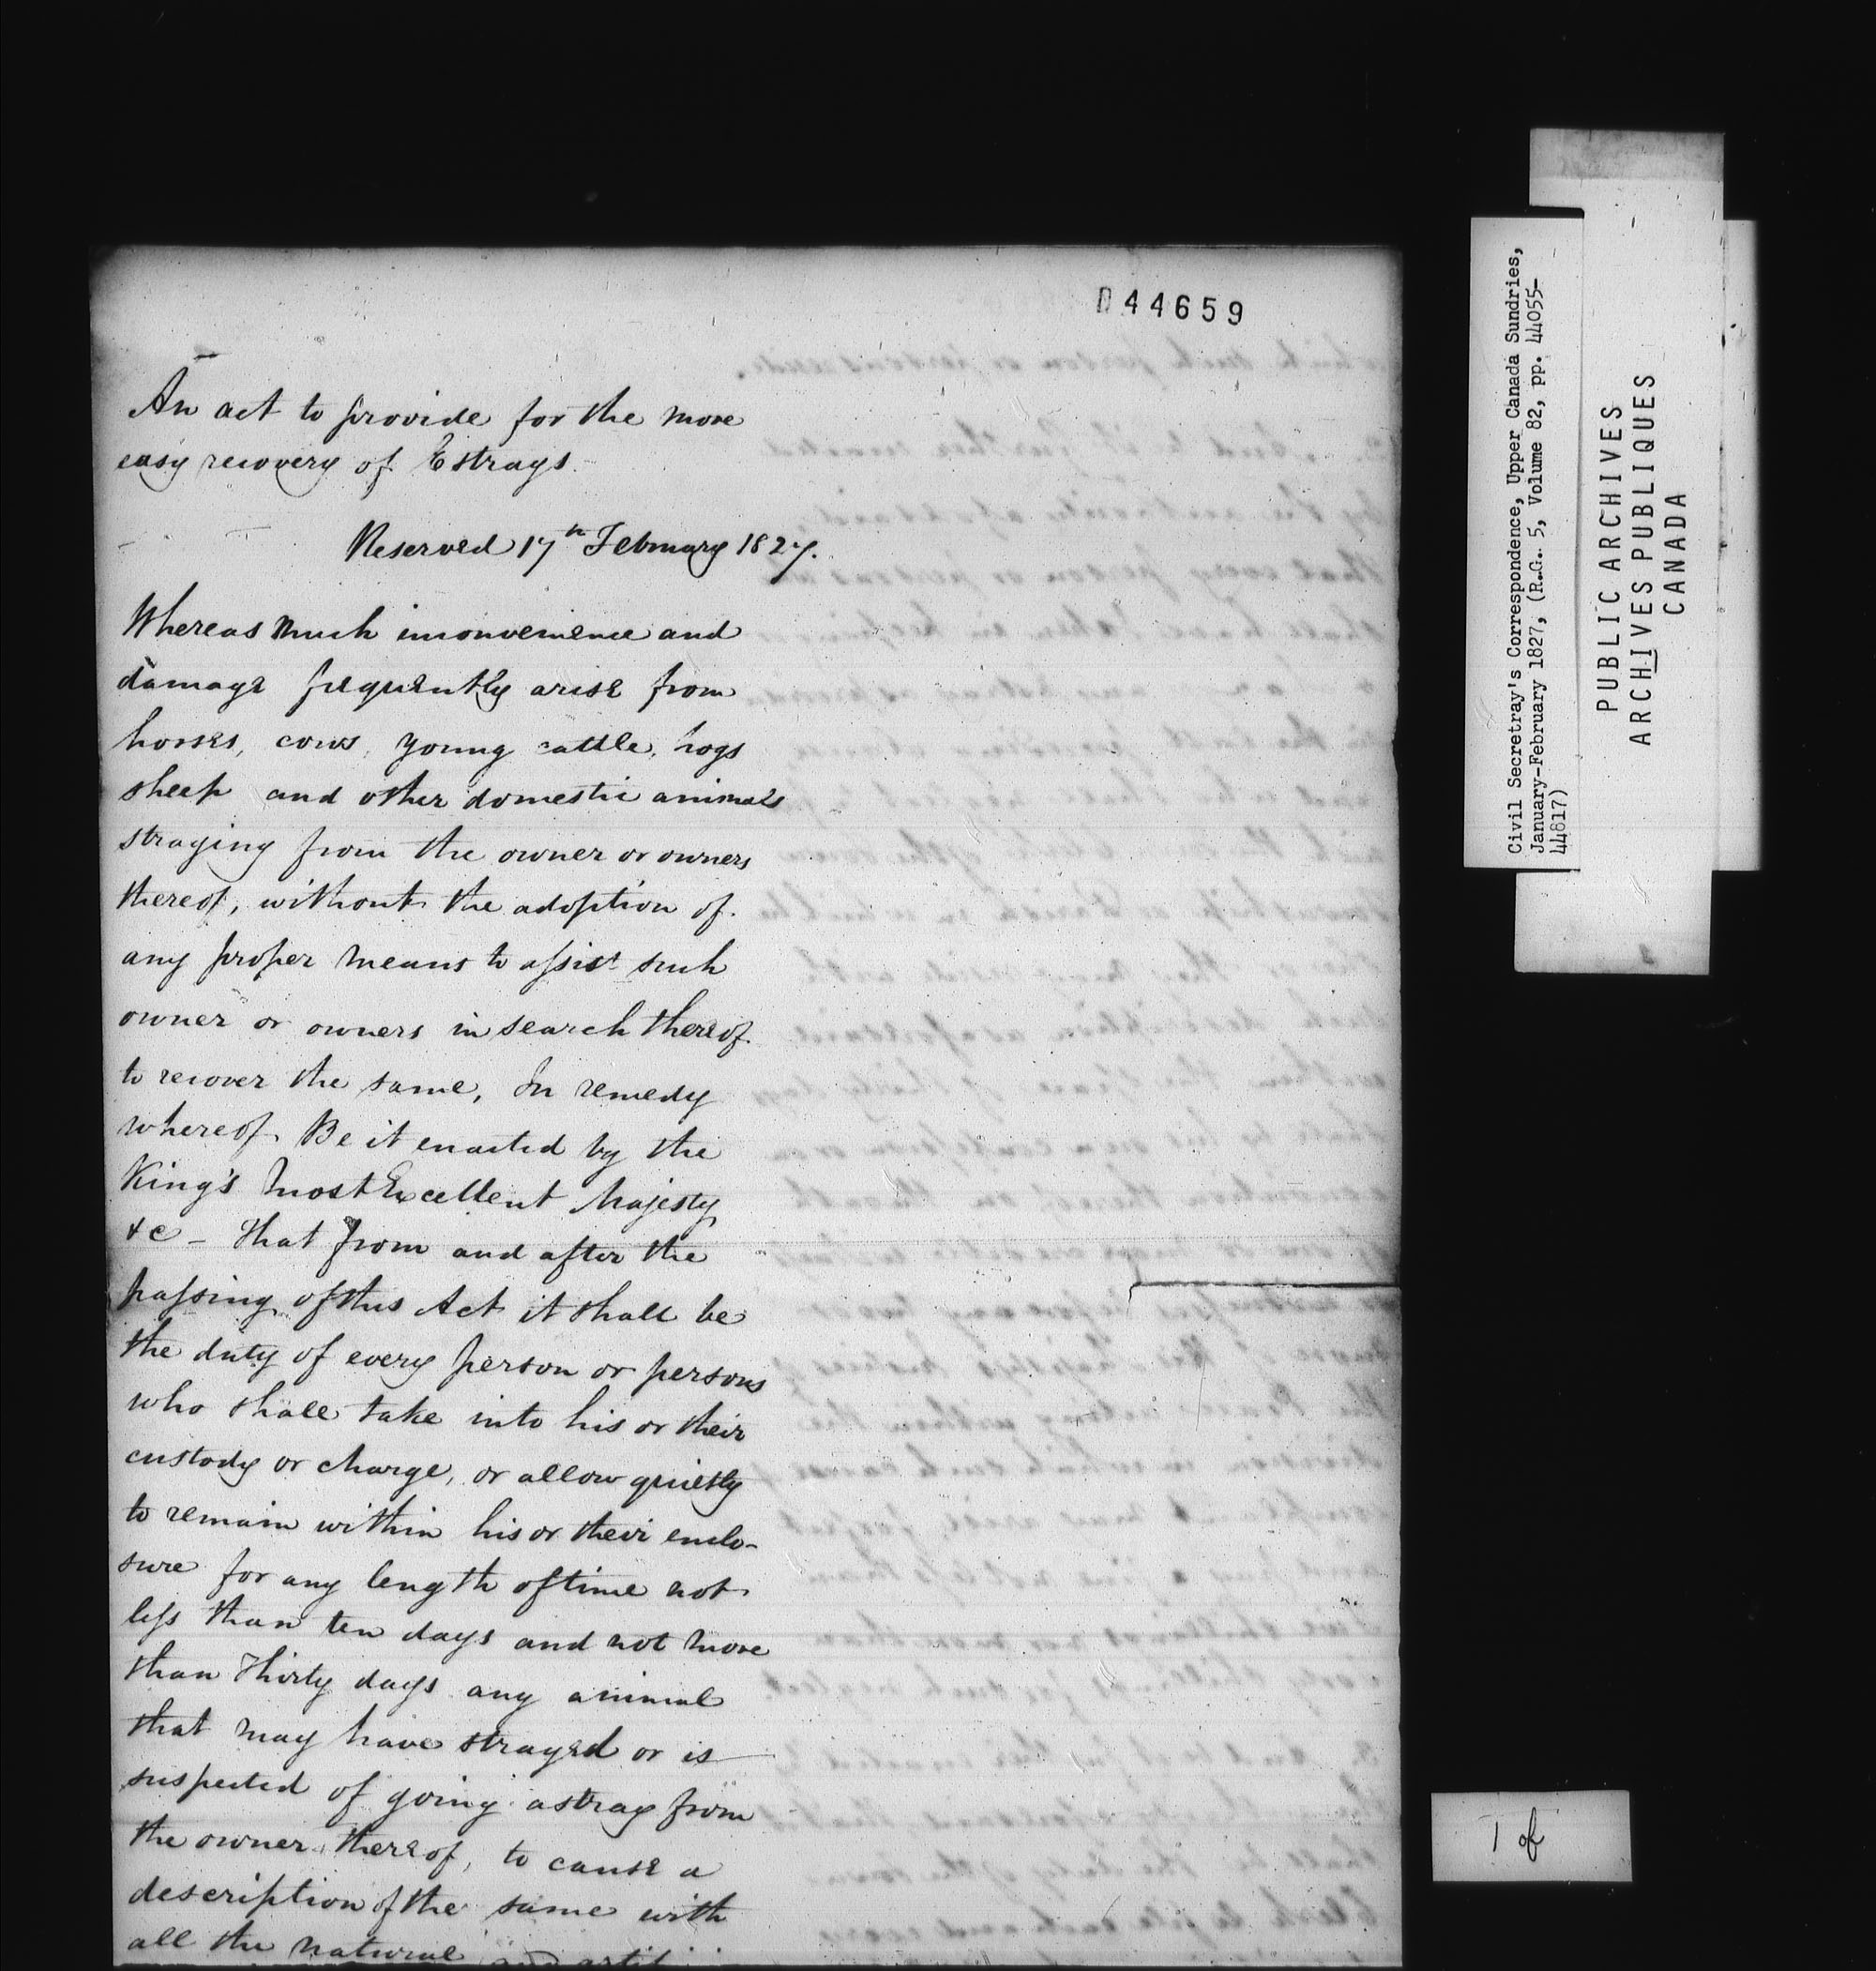 044659
An act to provide for the more
easy recovery of Estrays.
Reserved 17th February 1827.
Whereas much inconvenience and
damage frequently arise from
horses, cows, young cattle, hogs
sheep and other domestic animals
straying from the owner or owners
thereof, without the adoption of
any proper means to assist such
owner or owners in search thereof
to recover the same, In remedy
whereof, Be it enacted by the
King's Most Excellent Majesty
&c - That from and after the
passing of this Act it shall be
the duty of every person or persons
who shall take into his or their
custody or charge, or allow quietly
to remain within his or their enclo-
sure for any length of time not
less than ten days and not more
than Thirty days any animal
that may have strayed or is
suspected of going astray from
the owner thereof, to cause a
description of the same with
all the natural and
Civil Secretray's Correspondence, Upper Canada Sundries,
January-February 1827, (R.G. 5, Volume 82, pp. 44055-
44817)
PUBLIC ARCHIVES
ARCHIVES PUBLIQUES
CANADA
1 of